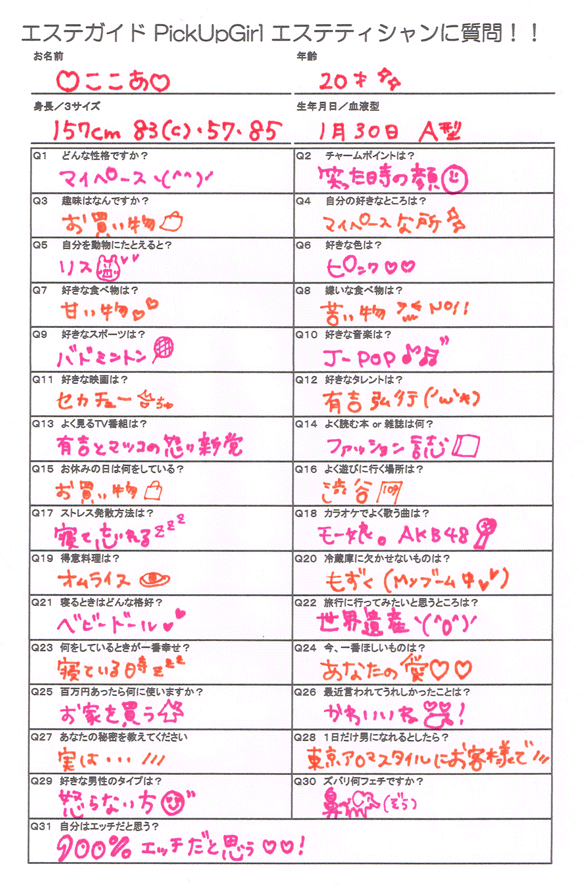 エステガイド PickUpGirl エステティシャンに質問！！
お名前
♡ここあ♡
年齢
20才
身長／3サイズ
157cm 83(c)・57・85
生年月日／血液型
1月30日 A型
Q1 どんな性格ですか？
マイペースヽ(^^)ノ
Q2 チャームポイントは？
笑った時の顔
Q3 趣味はなんですか？
お買い物
Q4 自分の好きなところは？
マイペースな所
Q5 自分を動物にたとえると？
リス
Q6 好きな色は？
ピンク♡♡
Q7 好きな食べ物は？
甘い物
Q8 嫌いな食べ物は？
苦い物 No!!
Q9 好きなスポーツは？
バドミントン
Q10 好きな音楽は？
J-POP♪♫
Q11 好きな映画は？
セカチュー
Q12 好きなタレントは？
有吉弘行('ω'*)
Q13 よく見るTV番組は？
有吉とマツコの怒り新党
Q14 よく読む本 or 雑誌は何？
ファッション誌
Q15 お休みの日は何をしている？
お買い物
Q16 よく遊びに行く場所は？
渋谷 109
Q17 ストレス発散方法は？
寝て忘れるzzz
Q18 カラオケでよく歌う曲は？
モー娘。AKB48
Q19 得意料理は？
オムライス
Q20 冷蔵庫に欠かせないものは？
もずく(Myブーム中♥♥)
Q21 寝るときはどんな格好？
ベビードール
Q22 旅行に行ってみたいと思うところは？
世界遺産ヽ(^o^)ノ
Q23 何をしているときが一番幸せ？
寝ている時zzz
Q24 今、一番ほしいものは？
あなたの愛♡♡
Q25 百万円あったら何に使いますか？
お家を買う☆
Q26 最近言われてうれしかったことは？
かわいいね!
Q27 あなたの秘密を教えてください
実は・・・///
Q28 1日だけ男になれるとしたら？
東京アロマスタイルにお客様で///
Q29 好きな男性のタイプは？
怒らない方
Q30 ズバリ何フェチですか？
鼻 (ぞう)
Q31 自分はエッチだと思う？
900％エッチだと思う♡♡!